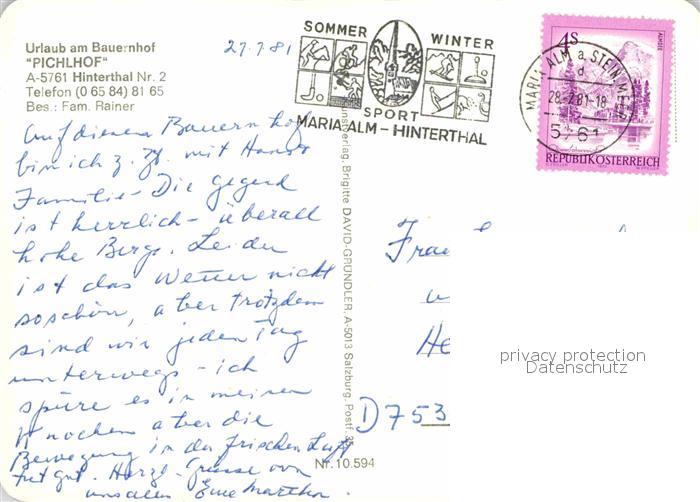 Urlaub am Bauernhof
"PICHLHOF"
A-5761 Hinterthal Nr. 2
Telefon (0 65 84) 81 65
Bes.: Fam. Rainer
27.7.81
SOMMER WINTER
SPORT
MARIA ALM – HINTERTHAL
4S
ALMSEE
REPUBLIK ÖSTERREICH
MARIA ALM a. STEIN. MEER
d
28.-7.81-18
5761
Auf diesem Bauernhof
bin ich z. Zt. mit Hans
Familie - Die Gegend
ist herrlich - überall
hohe Berge. Leider
ist das Wetter nicht
so schön, aber trotzdem
sind wir jeden Tag
unterwegs - ich
spüre es in meinen
Knochen aber die
Bewegung in der frischen Luft
tut gut. Herzl. Grüsse von
uns allen Eure Martha
Kunstverlag, Brigitte DAVID-GRÜNDLER, A-5013 Salzburg, Postf.
Nr. 10.594
Frau
u
He
D 753
privacy protection
Datenschutz